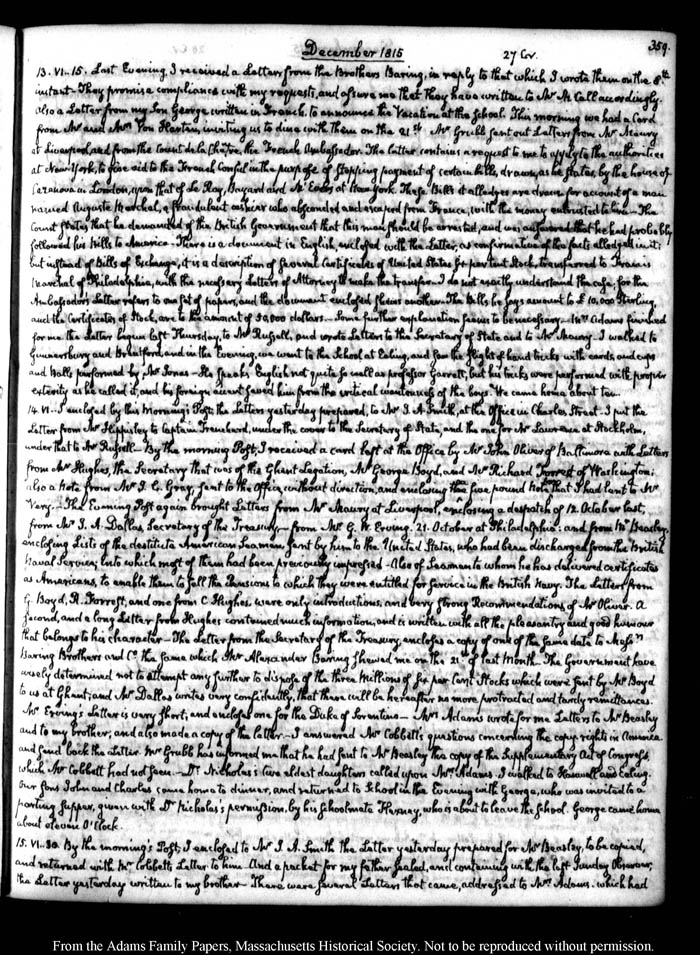 359.
December 1815
27 Cr.
13. VI..15. Last Evening, I received a Letter from the Brothers Baring, in reply to that which I wrote them on the 8th
instant. They promise compliance with my requests, and assure me that they have written to Mr McCall accordingly.
Also a Letter from my Son George written in French, to announce the Vacation at the School. This morning we had a Card
from Mr and Mrs Von Harten, inviting us to dine with them on the 21st Mr Grubb sent out Letters from Mr Maury
at Liverpool, and from the Count de la Châtre, the French Ambassador. The latter contains a request to me to apply to the authorities
at New-York, to give aid to the French Consul in the purpose of stopping payment of certain bills, drawn, as he states, by the house of
Cazenova in London, upon that of Le Roy, Bayard and McEvers at New York. These Bills it alledges are drawn for account of a man
named Auguste Marchal, a fraudulent cashier who absconded and escaped from France, with the money entrusted to him. The
Count states that he demanded of the British Government that this man should be arrested, and was answered that he had probably
followed his bills to America. There is a document in English, enclosed with the Letter, as confirmation of the facts alledged in it;
but instead of Bills of Exchange, it is a description of several Certificates of United States six per cent Stock, transferred to Francis
Marchal of Philadelphia, with the necessary Letters of Attorney to make the transfer. I do not exactly understand the case, for the
Ambassador's Letter refers to one set of papers, and the document enclosed shews another. The bills he says amount to £10,000 Sterling,
and the Certificates of Stock, are to the amount of dollars. Some further explanation seems to be necessary. Mrs Adams finished
for me the Letter begun last Thursday, to Mr Russell, and wrote Letters to the Secretary of State and to Mr Maury. I walked to
Gunnersbury and Brentford, and in the Evening, we went to the School at Ealing, and saw the slight of hand tricks with cards, and cups
and balls performed by Mr Jonas. He speaks English not quite so well as professor Garrett, but his tricks were performed with proper
exterity as he called it, and his foreign accent saved him from the critical wantonness of the boys. We came home about ten.
14. VI... I enclosed by this Morning's Post the Letters yesterday prepared, to Mr J. A. Smith, at the Office in Charles Street. I put the
Letter from Mr Hippisley to Captain Trenchard, under the cover to the Secretary of State, and the one for Mr Lawrence at Stockholm,
under that to Mr Russell. By the morning Post, I received a card left at the Office by Mr John Oliver of Baltimore with Letters
from Mr Hughes, the Secretary that was of the Ghent Legation, Mr George Boyd, and Mr Richard Forrest of Washington:
also a Note from Mr F. C. Gray, sent to the Office, without direction, and enclosing the five pound Note that I had lent to Mr
Very. The Evening Post again brought Letters from Mr Maury at Liverpool, enclosing a despatch of 12 October last,
from Mr J. A. Dallas, Secretary of the Treasury. from Mr G. W. Erving. 21. October at Philadelphia: and from Mr Beasley,
enclosing Lists of the destitute American Seamen sent by him to the United States, who had been discharged from the British
Naval Service; into which most of them had been previously impressed. Also of Seamen to whom he has delivered certificates
as Americans, to enable them to sell the Pensions to which they were entitled for service in the British Navy. The Letters from
G. Boyd, R. Forrest, and one from C. Hughes, were only introductions, and very strong Recommendations, of Mr Oliver. A
second, and a long Letter from Hughes contained much information, and is written with all the pleasantry and good humour
that belongs to his character. The Letter from the Secretary of the Treasury, encloses a copy of one of the same date to Messrs
Baring Brothers and Co the same which Mr Alexander Baring shewed me on the 21st of last Month. The Government have
wisely determined not to attempt any further to dispose of the three Millions of six per Cent Stocks which were sent by Mr Boyd
to us at Ghent; and Mr Dallas writes very confidently, that there will be hereafter no more protracted and tardy remittances.
Mr Erving's Letter is very short; and encloses one for the Duke of Sorentino. Mrs Adams wrote for me Letters to Mr Beasley
and to my brother; and also made a copy of the latter. I answered Mr Cobbett's questions concerning the copy rights in America
and send back the Letter Mr Grubb has informed me that he had sent to Mr Beasley the copy of the Supplementary Act of Congress,
which Mr Cobbett had not seen. Dr Nicholas's two eldest daughters called upon Mrs Adams. I walked to Hanwell and Ealing.
Our sons John and Charles came home to dinner, and returned to School in the Evening with George, who was invited to a
parting supper, given with Dr Nicholas's permission, by his schoolmate Harvey, who is about to leave the School. George came home
about eleven O'Clock.
15. VI..30. By the morning's Post, I enclosed to Mr J. A. Smith the Letter yesterday prepared for Mr Beasley, to be copied,
and returned with Mr Cobbett's Letter to him. And a packet for my father sealed, and containing with the last Sunday Observer,
the Letter yesterday written to my brother. There were several Letters that came, addressed to Mrs Adams. which had
From the Adams Family Papers, Massachusetts Historical Society. Not to be reproduced without permission.